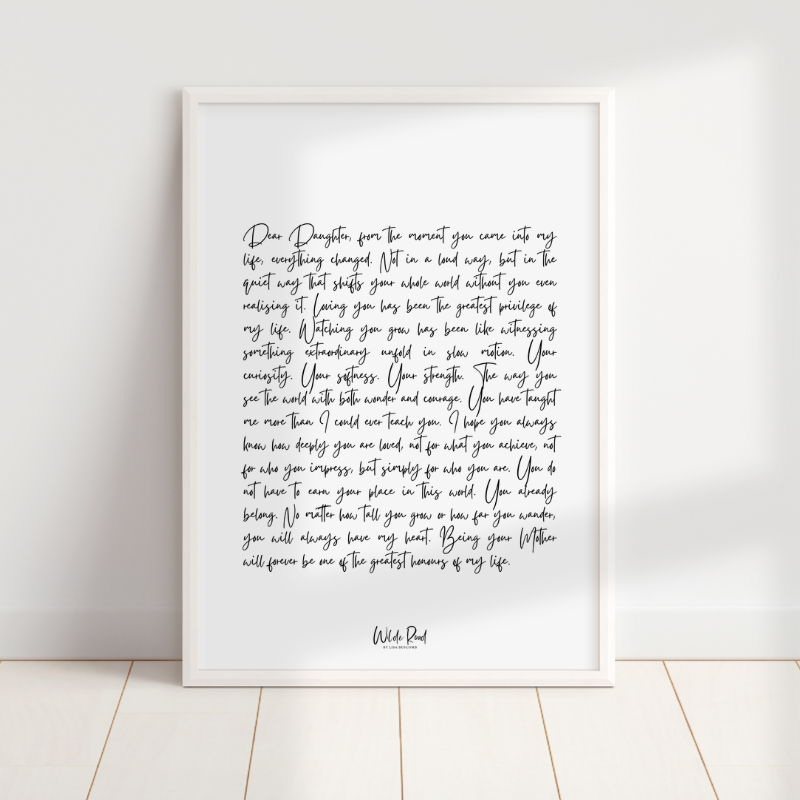 Dear Daughter, from the moment you came into my
life, everything changed. Not in a loud way, but in the
quiet way that shifts your whole world without you even
realising it. Loving you has been the greatest privilege of
my life. Watching you grow has been like witnessing
something extraordinary unfold in slow motion. Your
curiosity. Your softness. Your strength. The way you
see the world with both wonder and courage. You have taught
me more than I could ever teach you. I hope you always
know how deeply you are loved, not for what you achieve, not
for who you impress, but simply for who you are. You do
not have to earn your place in this world. You already
belong. No matter how tall you grow or how far you wander,
you will always have my heart. Being your Mother
will forever be one of the greatest honours of my life.
Wilde Road
BY LISA